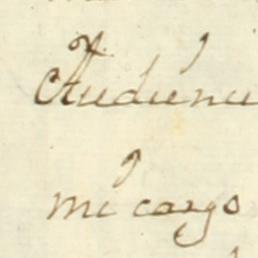 Audienci
mi cargo